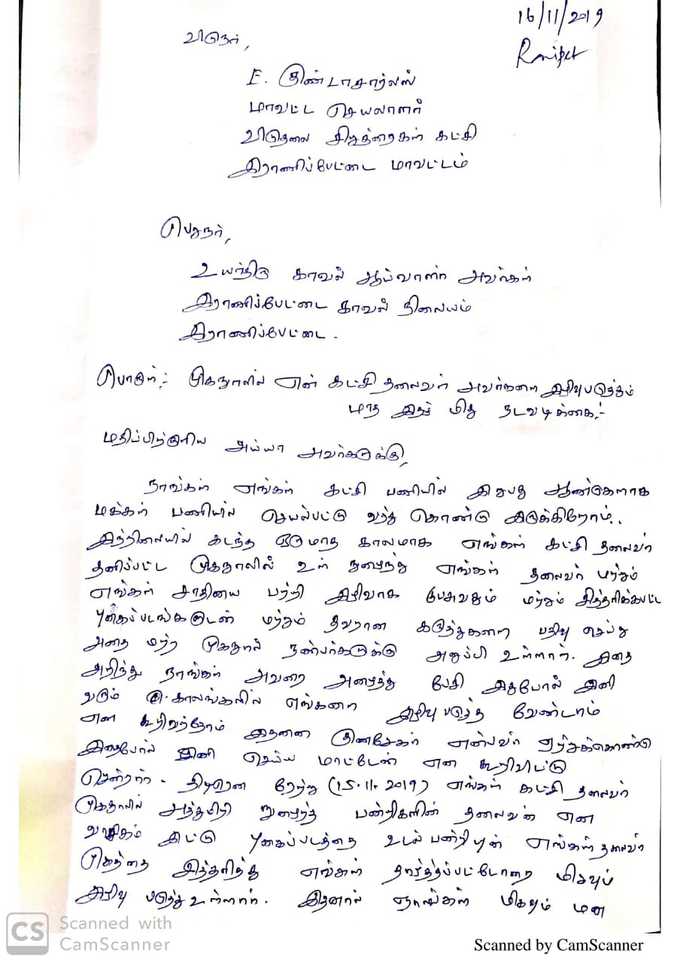 16/11/2019
Ranipet
விடுநர்,
E. குண்டாசார்லஸ்
மாவட்ட செயலாளர்
விடுதலை சிறுத்தைகள் கட்சி
இராணிப்பேட்டை மாவட்டம்
பெறுநர்,
உயர்திரு காவல் ஆய்வாளர் அவர்கள்
இராணிப்பேட்டை காவல் நிலையம்
இராணிப்பேட்டை.
பொருள்:- முகநூலில் என் கட்சி தலைவர் அவர்களை இழிவுபடுத்தும்
மீது நடவடிக்கை:-
மதிப்பிற்குரிய அய்யா அவர்களுக்கு,
நாங்கள் எங்கள் கட்சி பணியில் இருபது ஆண்டுகளாக
மக்கள் பணியில் செயல்பட்டு வந்து கொண்டு இருக்கிறோம்.
இந்நிலையில் கடந்த ஒருமாத காலமாக எங்கள் கட்சி தலைவர்
தனிப்பட்ட முகநூலில் உள் நுழைந்து எங்கள் தலைவர் மற்றும்
எங்கள் சாதியை பற்றி இழிவாக பேசுவதும் மற்றும் சித்தரிக்கப்பட்ட
புகைப்படங்களுடன் மற்றும் தவறான கருத்துகளை பதிவு செய்து
அதை மற்ற முகநூல் நண்பர்களுக்கு அனுப்பி உள்ளார். இதை
அறிந்து நாங்கள் அவரை அழைத்து பேசி இதுபோல் இனி
வரும் காலங்களில் எங்களை இழிவு படுத்த வேண்டாம்
என கூறிவந்தோம் இதனை குணசேகர் என்பவர் ஏற்றுக்கொண்டு
இதுபோல் இனி செய்ய மாட்டேன் என கூறிவிட்டு
சென்றார். திடீரென நேற்று (15.11.2019) எங்கள் கட்சி தலைவர்
முகநூலில் அத்துமீறி நுழைந்து பன்றிகளின் தலைவன் என
வாசகம் இட்டு புகைப்படத்தை உடல் பன்றியுன் எங்கள் தலைவர்
முகத்தை சித்தரித்து எங்கள் தாழ்த்தப்பட்டோரை மிகவும்
இழிவு படுத்தி உள்ளார். இதனால் நாங்கள் மிகவும் மன
CS Scanned with
CamScanner
Scanned by CamScanner